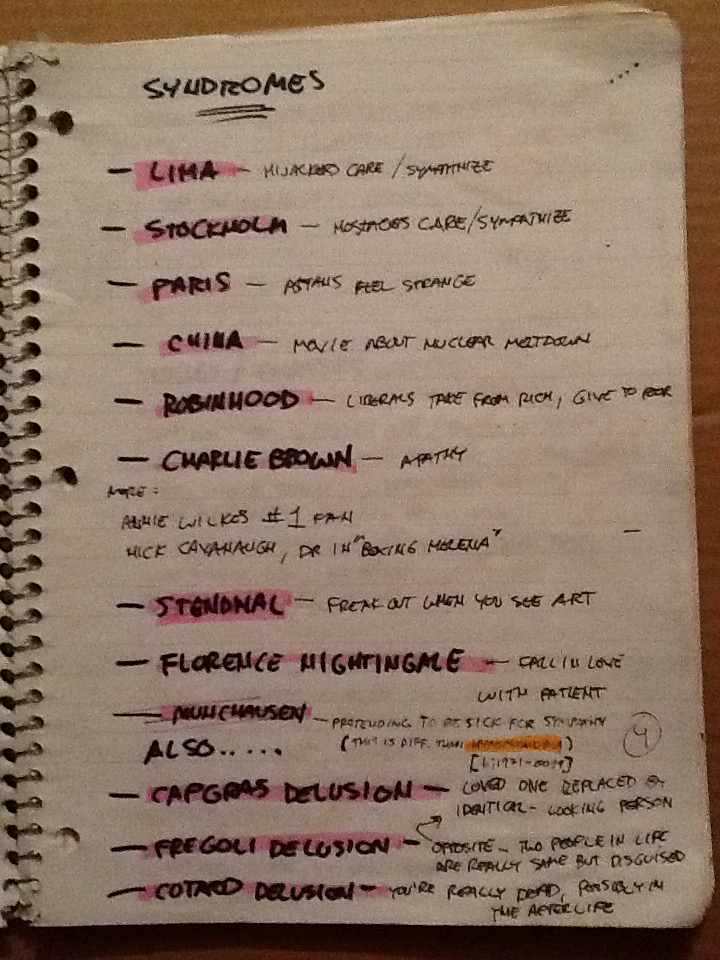 SYNDROMES
— LIMA — HIJACKERS CARE / SYMPATHIZE
— STOCKHOLM — HOSTAGES CARE/SYMPATHIZE
— PARIS — ASIANS FEEL STRANGE
— CHINA — MOVIE ABOUT NUCLEAR MELTDOWN
— ROBINHOOD — LIBERALS TAKE FROM RICH, GIVE TO POOR
— CHARLIE BROWN — APATHY
MORE:
ANNIE WILKES #1 FAN
NICK CAVANAUGH, DR IN "BOXING HELENA"
— STENDHAL — FREAK OUT WHEN YOU SEE ART
— FLORENCE NIGHTINGALE — FALL IN LOVE
WITH PATIENT
— MUNCHAUSEN — PRETENDING TO BE SICK FOR SYMPATHY
(THIS IS DIFF. THAN )
ALSO.....
4
— CAPGRAS DELUSION — LOVED ONE REPLACED BY
IDENTICAL-LOOKING PERSON
— FREGOLI DELUSION — OPPOSITE... TWO PEOPLE IN LIFE
ARE REALLY SAME BUT DISGUISED
— COTARD DELUSION — YOU'RE REALLY DEAD, POSSIBLY IN
THE AFTERLIFE